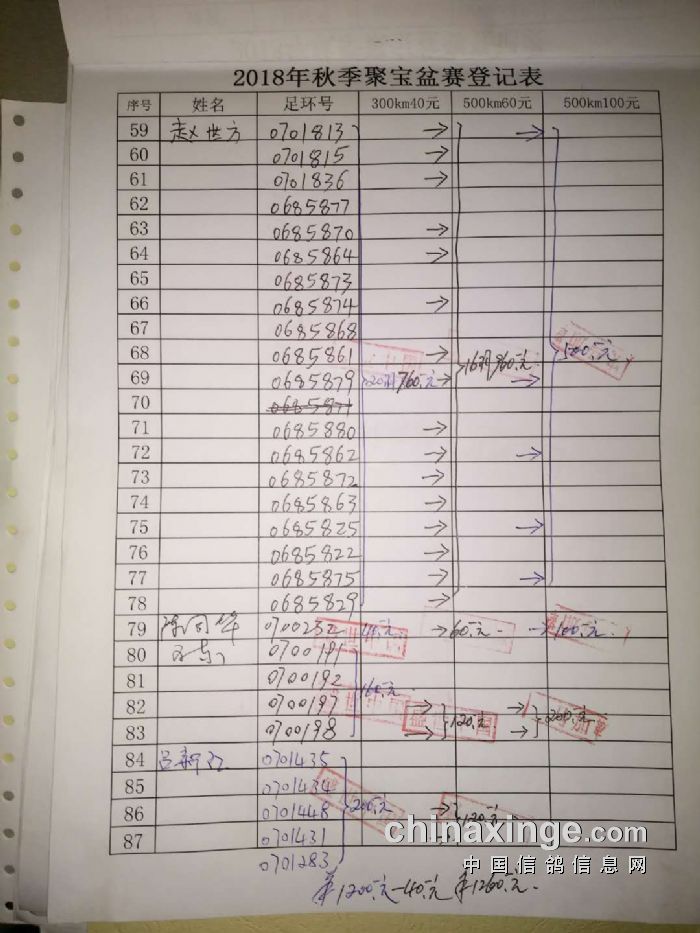 2018年秋季聚宝盆赛登记表
序号 姓名 足环号 300km40元 500km60元 500km100元
59 赵世方 0701813
60 0701815
61 0701836
62 0685877
63 0685870
64 0685864
65 0685873
66 0685874
67 0685868
68 0685861
69 0685879 760元 16羽960元 500元
70 0685871
71 0685880
72 0685862
73 0685872
74 0685863
75 0685825
76 0685822
77 0685875
78 0685829
79 0700232 40元 60元 100元
80 0700191
81 0700192 160元
82 0700197
83 0700198 120元 200元
84 0701435
85 0701434
86 0701448 200元 120元
87 0701431
0701283
1200元-40元 1260元
chinaxinge.com
中国信鸽信息网